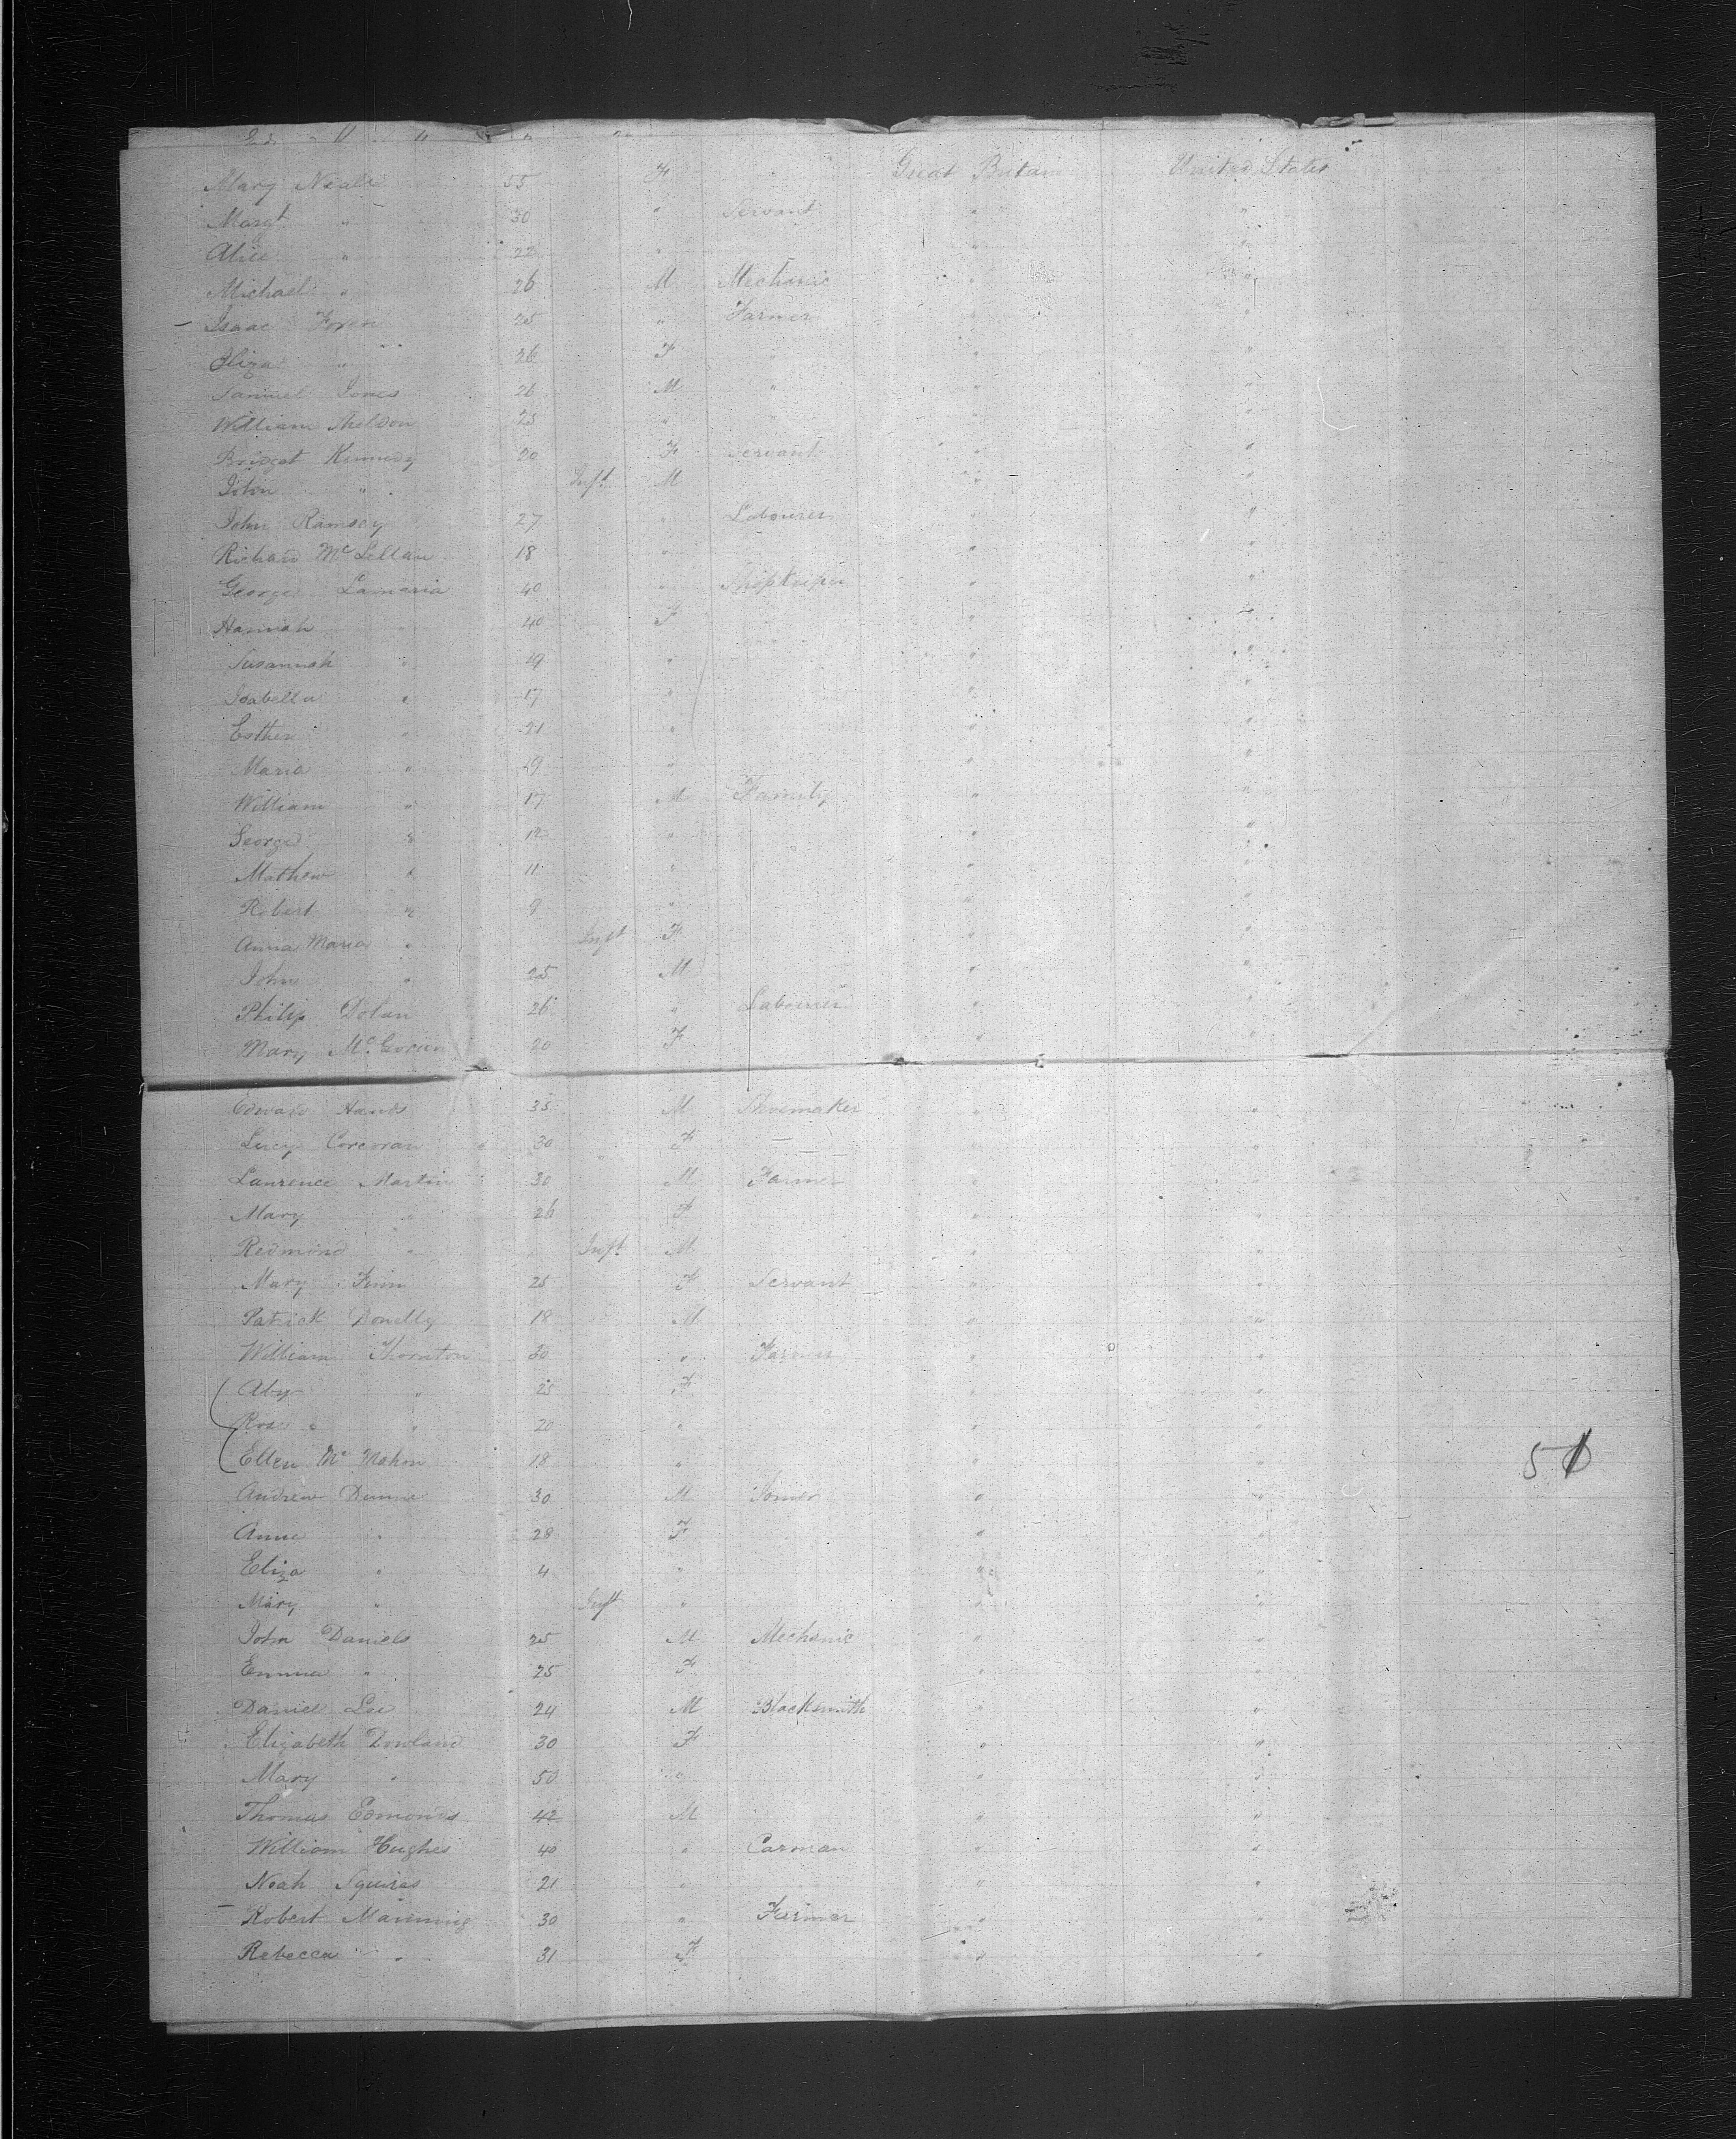 Mary Neale 55 F Great Britain United States
Margt " 30 " Servant " "
Alice " 22 " " "
Michael " 26 M Mechanic " "
Isaac 25 " Farmer " "
Eliza " 26 F " " "
Samuel Jones 26 M " " "
William Sheldon 25 " " " "
Bridget Kennedy 20 F Servant " "
John " Inft M " "
John Ramsey 27 " Labourer " "
Richard McLellan 18 " " "
George Lamaria 40 " Shopkeeper " "
Hannah " 40 F " "
Susannah " 19 " " "
Isabella " 17 " " "
Esther " 21 " " "
Maria " 9 " " "
William " 17 M Family " "
George " 12 " " "
Mathew " 11 " " "
Robert " 9 " " "
Anna Maria " Inft F " "
John " 25 M " "
Philip Dolan 26 " Labourer " "
Mary 20 F " "
Edward Hands 35 M Shoemaker " "
Lucy Corcoran 30 F " "
Laurence Martin 30 M Farmer " "
Mary " 26 F " "
Redmond " Inft M " "
Mary Finn 25 F Servant " "
Patrick Donelly 18 M " "
William Thornton 30 " Farmer " "
Aby " 25 F " "
Rose " 20 " " "
Ellen Mc Mahon 18 " " "
51
Andrew Dunne 30 M " "
Anne " 28 F " "
Eliza " 4 " " "
Mary " Inft " " "
John Daniels 25 M Mechanic " "
Emma " 25 F " "
Daniel Lee 24 M Blacksmith " "
Elizabeth Dowland 30 F " "
Mary " 50 " " "
Thomas Edmonds 42 M " "
William Hughes 40 " Carman " "
Noah Squires 21 " " "
Robert Manning 30 " Farmer " "
Rebecca " 31 F " "